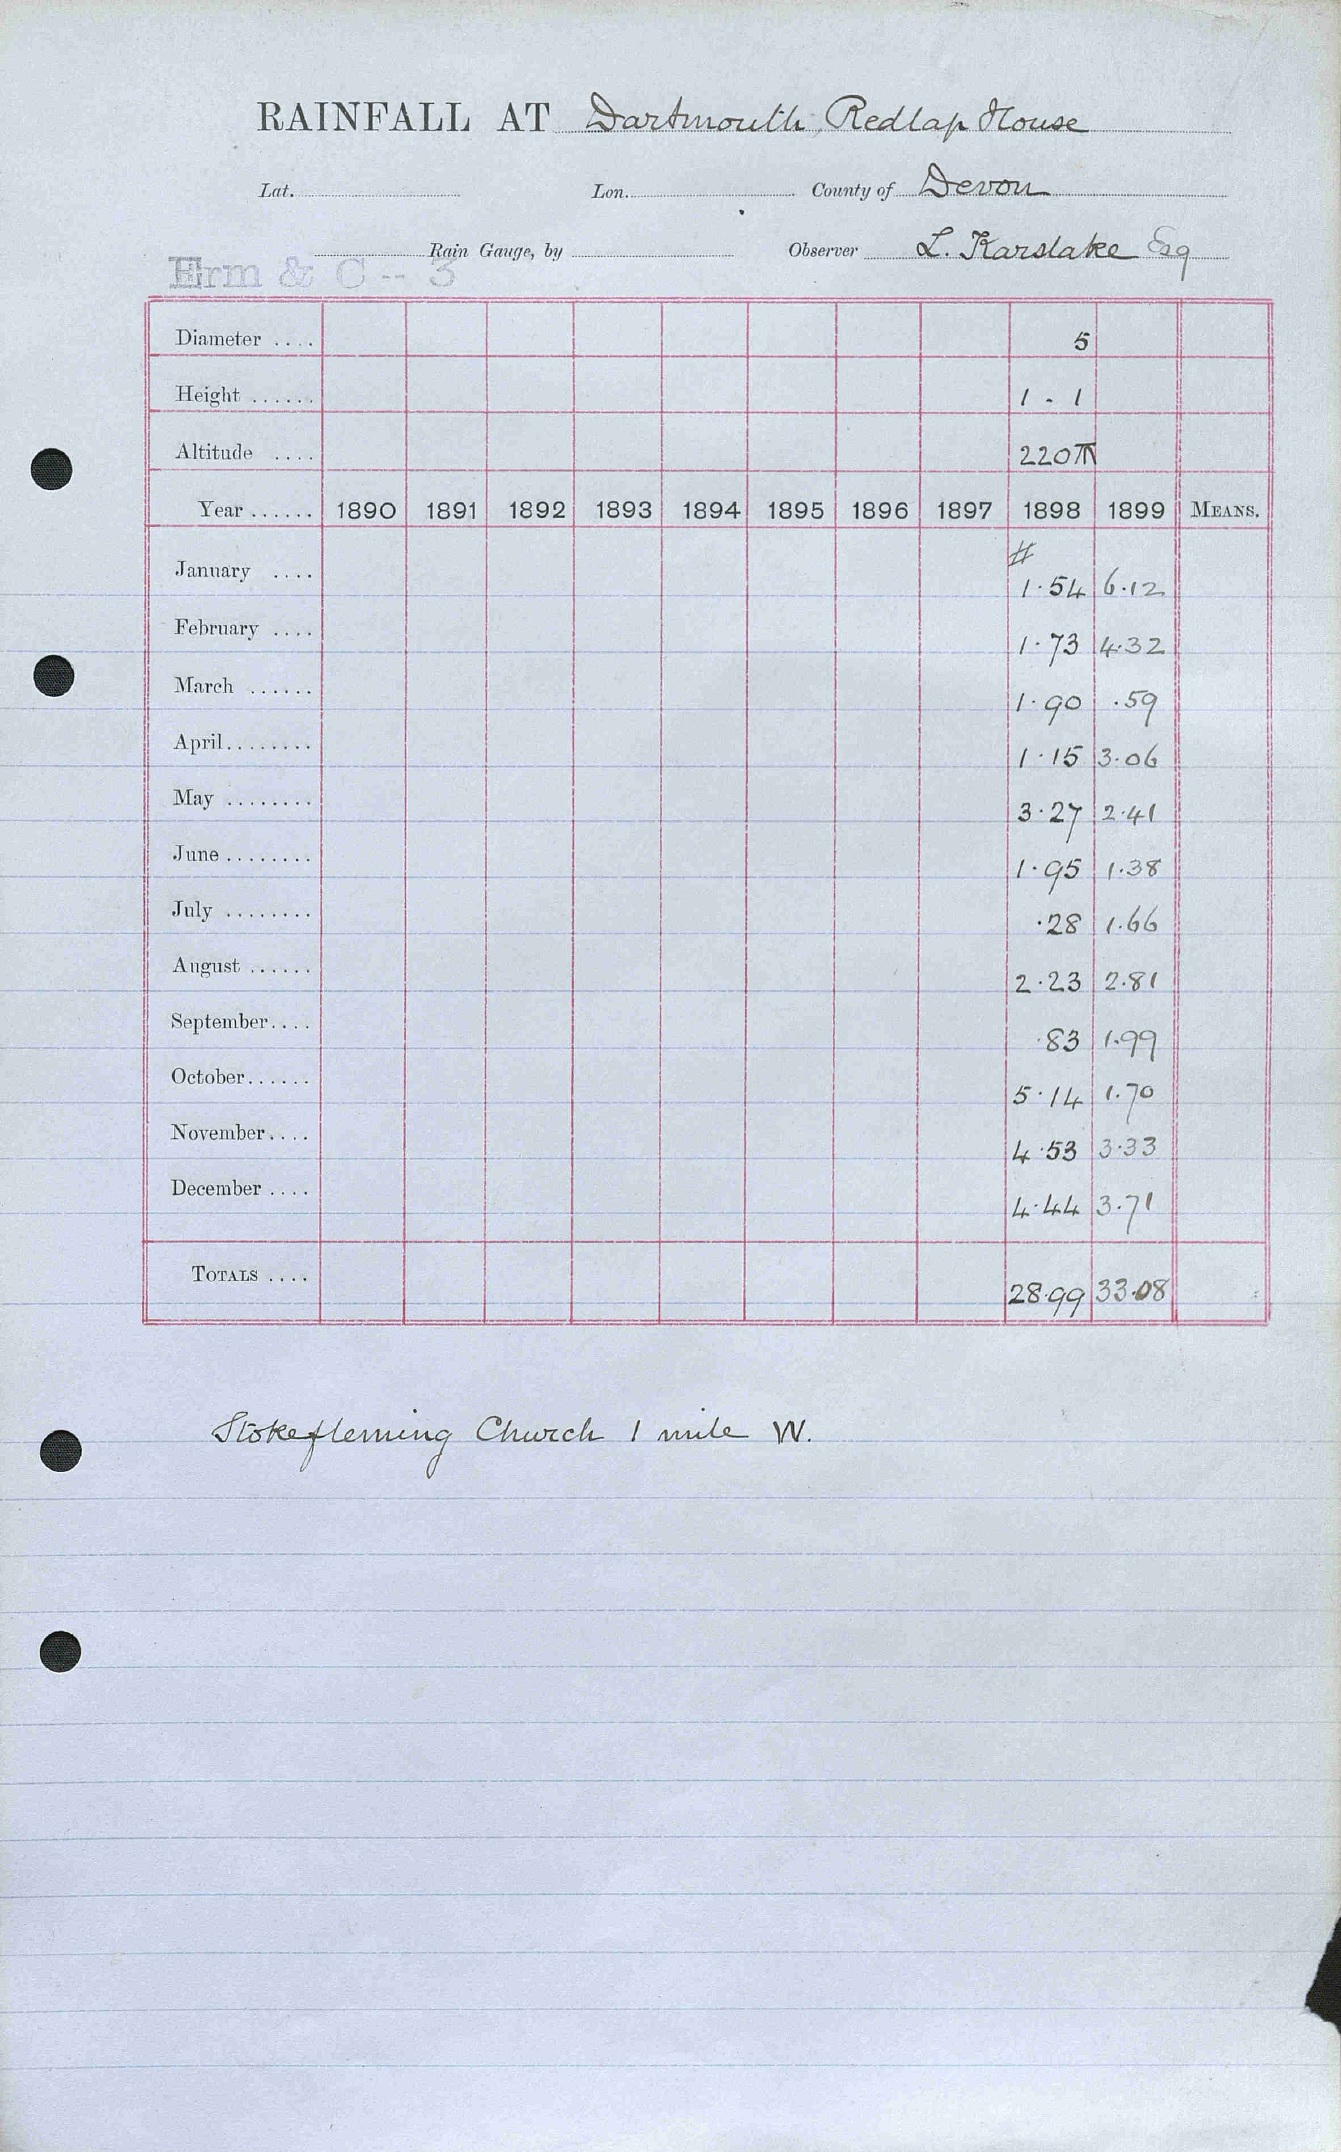 RAINFALL AT Dartmouth, Redlap House
Lat. Lon. County of Devon
Rain Gauge, by Observer L. Karslake Esq
Erm & C -- 3
Diameter .... 5
Height ...... 1 - 1
Altitude .... 220
Year ...... 1890 1891 1892 1893 1894 1895 1896 1897 1898 1899 MEANS.
#
January .... 1.54 6.12
February .... 1.73 4.32
March ...... 1.90 .59
April........ 1.15 3.06
May ........ 3.27 2.41
June ........ 1.95 1.38
July ........ .28 1.66
August ...... 2.23 2.81
September.... .83 1.99
October...... 5.14 1.70
November.... 4.53 3.33
December .... 4.44 3.71
TOTALS .... 28.99 33.08
Stokefleming Church 1 mile W.